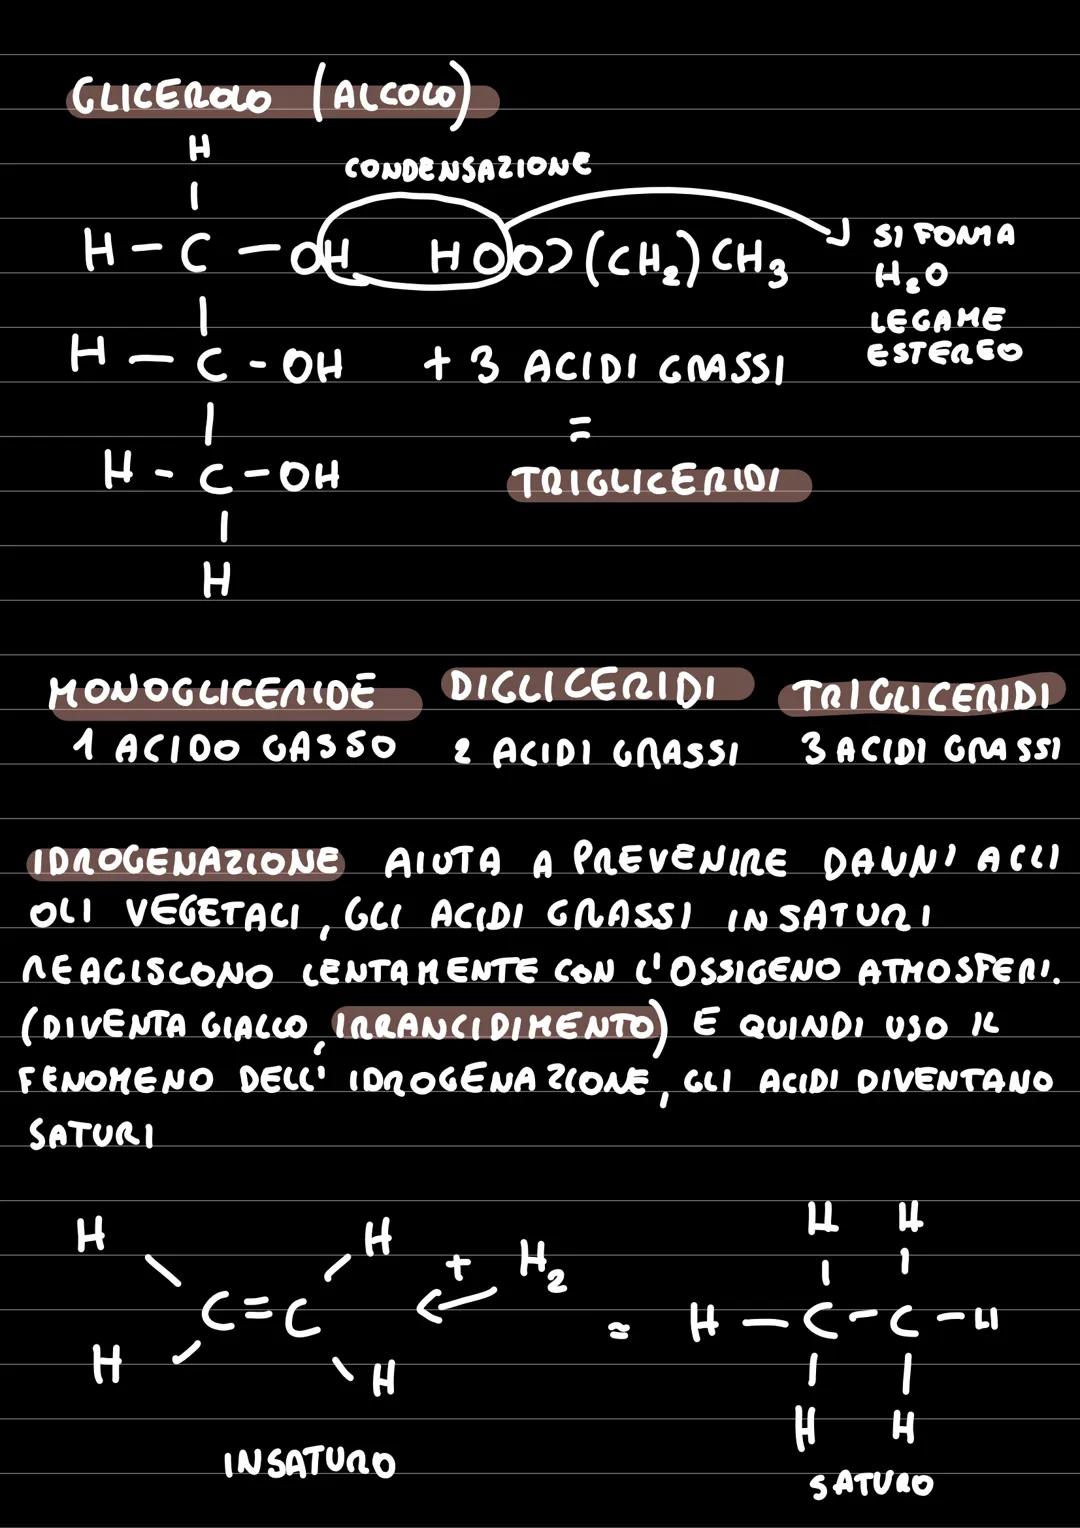 GLICEROLO (ALCOLO)
H
CONDENSAZIONE
H - C - OH HOOC(CH₂)CH₃
SI FORMA
H₂O
LEGAME
ESTEREO
H - C - OH + 3 ACIDI GRASSI
=
H - C - OH TRIGLICERIDI
H
MONOGLICERIDE DIGLICERIDI TRIGLICERIDI
1 ACIDO GASSO 2 ACIDI GRASSI 3 ACIDI GRASSI
IDROGENAZIONE AIUTA A PREVENIRE DANNI AGLI
OLI VEGETALI, GLI ACIDI GRASSI INSATURI
REAGISCONO LENTAMENTE CON L'OSSIGENO ATMOSFERI.
(DIVENTA GIALLO, IRRANCIDIMENTO) E QUINDI USO IL
FENOMENO DELL' IDROGENAZIONE, GLI ACIDI DIVENTANO
SATURI
H H + H₂ H H
C = C = H - C - C - H
H H H H
INSATURO SATURO